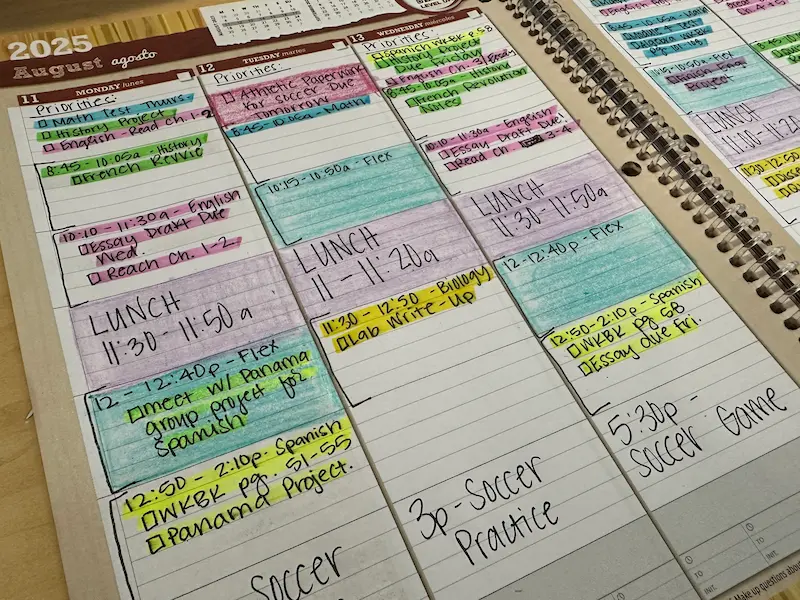 2025
August agosto
11 MONDAY lunes
Priorities:
Math Test Thurs.
History Project
English - Read Ch. 1-2
8:45 - 10:05a - History
French Revvie
10:10 - 11:30a - English
Essay Draft Due
Wed.
Reach Ch. 1-2
LUNCH
11:30 - 11:50a
12 - 12:40p - Flex
meet w/ Panama
group project for
Spanish
12:50 - 2:10p - Spanish
WKBK pg. 51-55
Panama Project.
Soccer
12 TUESDAY martes
Priorities:
Athletic Paperwork
for Soccer Due
Tomorrow
8:45 - 10:05a - Math
10:15 - 10:50a - Flex
LUNCH
11 - 11:20a
11:30 - 12:50 - Biology
Lab Write-Up
3p - Soccer
Practice
13 WEDNESDAY miércoles
Priorities:
Spanish WKBK p 58
History Project
English Ch. 3
8:45 - 10:05a - History
French Revolution
Notes
10:10 - 11:30a - English
Essay Draft Due!
Read Ch. 3-4
LUNCH
11:30 - 11:50a
12 - 12:40p - Flex
12:50 - 2:10p - Spanish
WKBK pg. 58
Essay due Fri.
5:30p -
Soccer Game
TO
INIT.
TO
INIT.
Make up questions about
Flex
Project
LUNCH
11:00 - 11:2
11:30 - 12:50